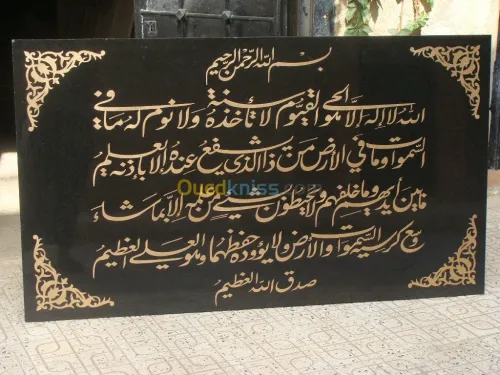 بسم الله الرحمن الرحيم
الله لا إله إلا هو الحي القيوم لا تأخذه سنة ولا نوم له ما في
السموات وما في الأرض من ذا الذي يشفع عنده إلا بإذنه يعلم
ما بين أيديهم وما خلفهم ولا يحيطون بشيء من علمه إلا بما شاء
وسع كرسيه السموات والأرض ولا يؤوده حفظهما وهو العلي العظيم
صدق الله العظيم
Ouedkniss.com